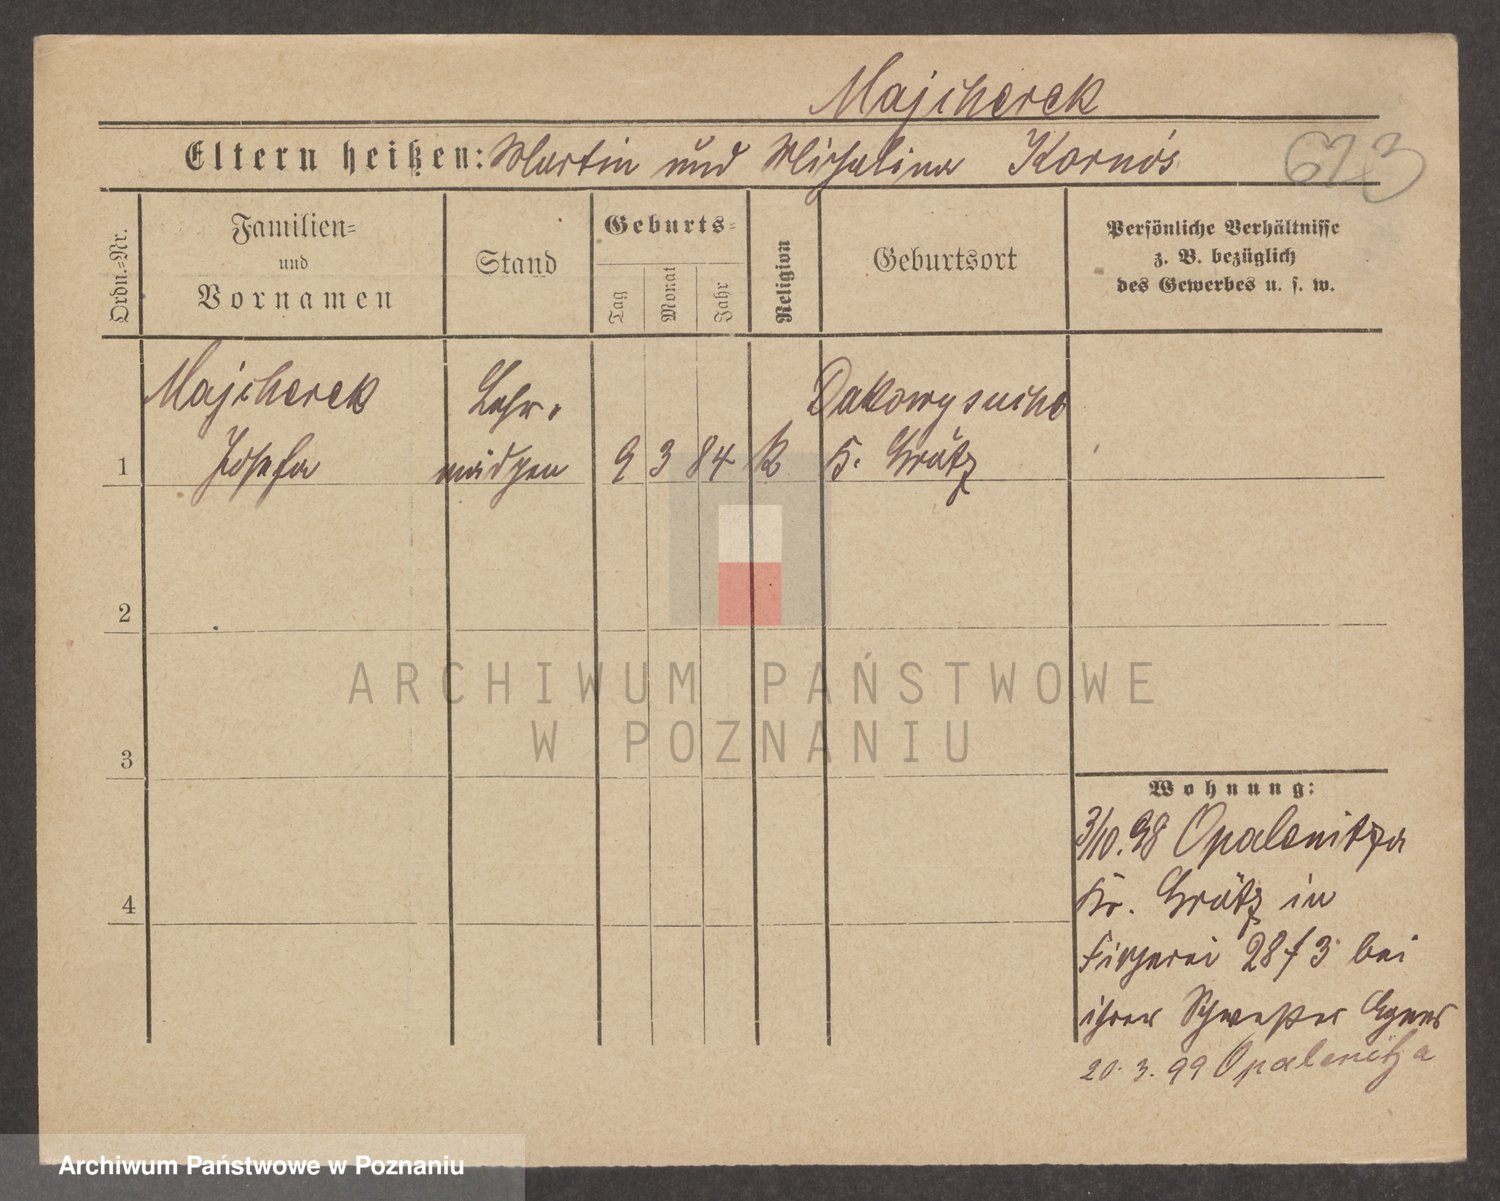 Majcherek
Eltern heißen: Martin und Michalina Kornós
623
Ordn.-Nr.
Familien-
und
Vornamen
Stand
Geburts-
Tag
Monat
Jahr
Religion
Geburtsort
Persönliche Verhältnisse
z. B. bezüglich
des Gewerbes u. s. w.
Majcherek Lehr- Dakowy suche
1 Josefa mädchen 9 3 84 k K. Grätz
2
ARCHIWUM PAŃSTWOWE
W POZNANIU
3
Wohnung:
3/10.98 Opalenitza
4 Kr. Grätz in
Fischerei 28 f 3 bei
ihrer Schwester
20. 3. 99 Opalenitza
Archiwum Państwowe w Poznaniu